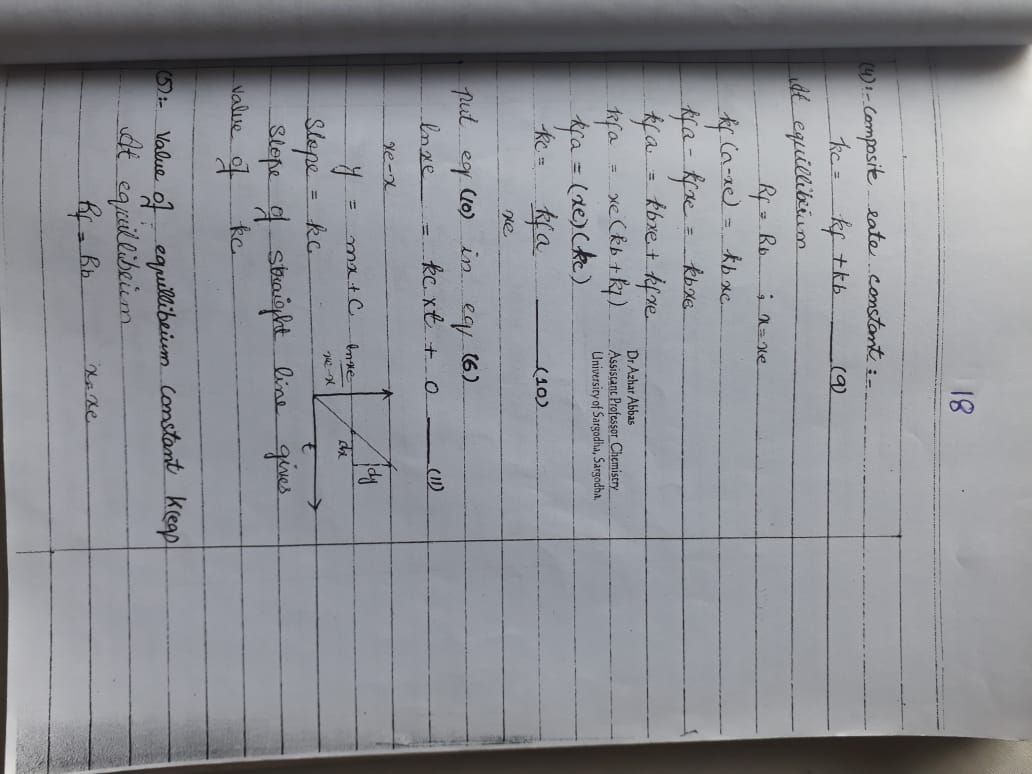 18
(4):- Composite rate constant:-
kc = kf + kb ——(9)
At equillibrium
Rf = Rb ; x = xe
kf(a-xe) = kbxe
kfa - kfxe = kbxe
kfa = kbxe + kfxe
kfa = xe(kb+kf)
kfa = (xe)(kc)
kc = kfa ——(10)
xe
Dr Azhar Abbas
Assistant Professor Chemistry
University of Sargodha, Sargodha.
put eq (10) in eq (6)
lnxe = kc x t + 0 ——(11)
xe-x
y = mx + c
Slope = kc
lnxe
xe-x
dx
dy
t
Slope of straight line gives
value of kc
(5):- Value of equillibrium constant k(eq)
At equillibrium
Rf = Rb x=xe